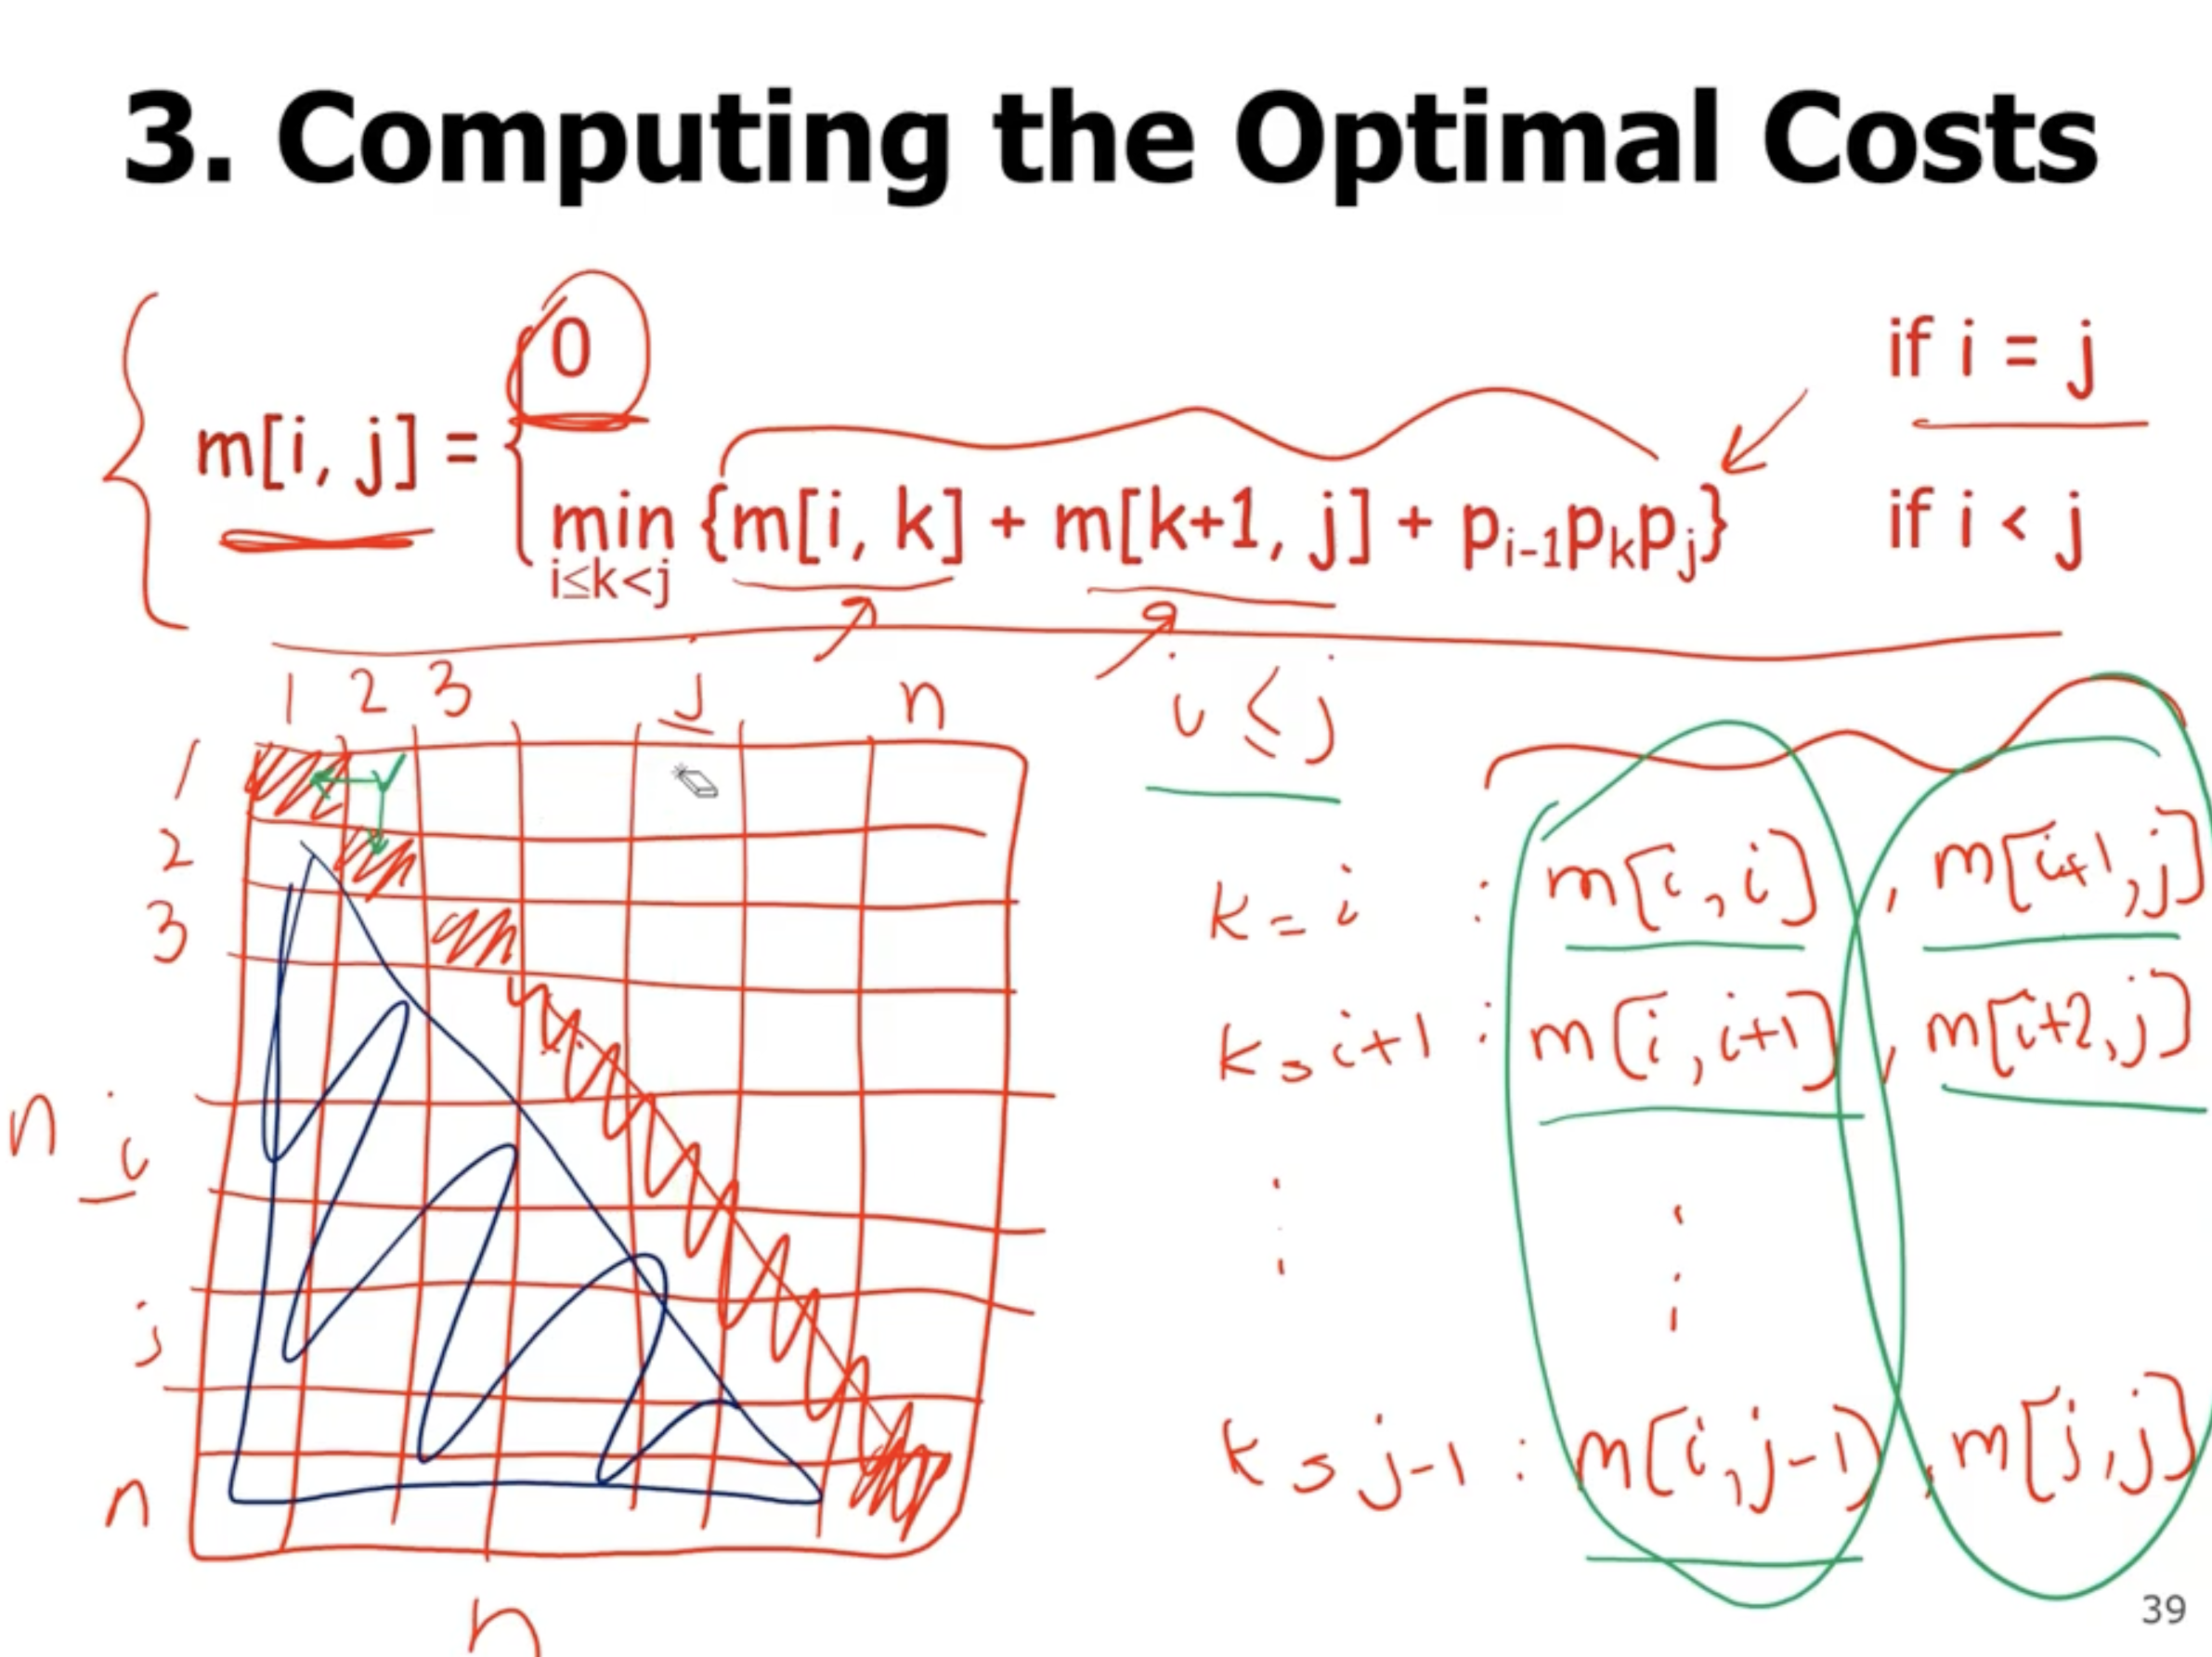 3. Computing the Optimal Costs
0 if i = j
m[i, j] = {
min {m[i, k] + m[k+1, j] + pi-1pkpj} if i < j
i≤k<j
1 2 3 j n
i ≤ j
1
2
3
n i
j
n
n
k = i : m[i, i] , m[i+1, j]
k = i+1 : m[i, i+1] , m[i+2, j]
⋮ ⋮
k = j-1 : m[i, j-1] , m[j, j]
39